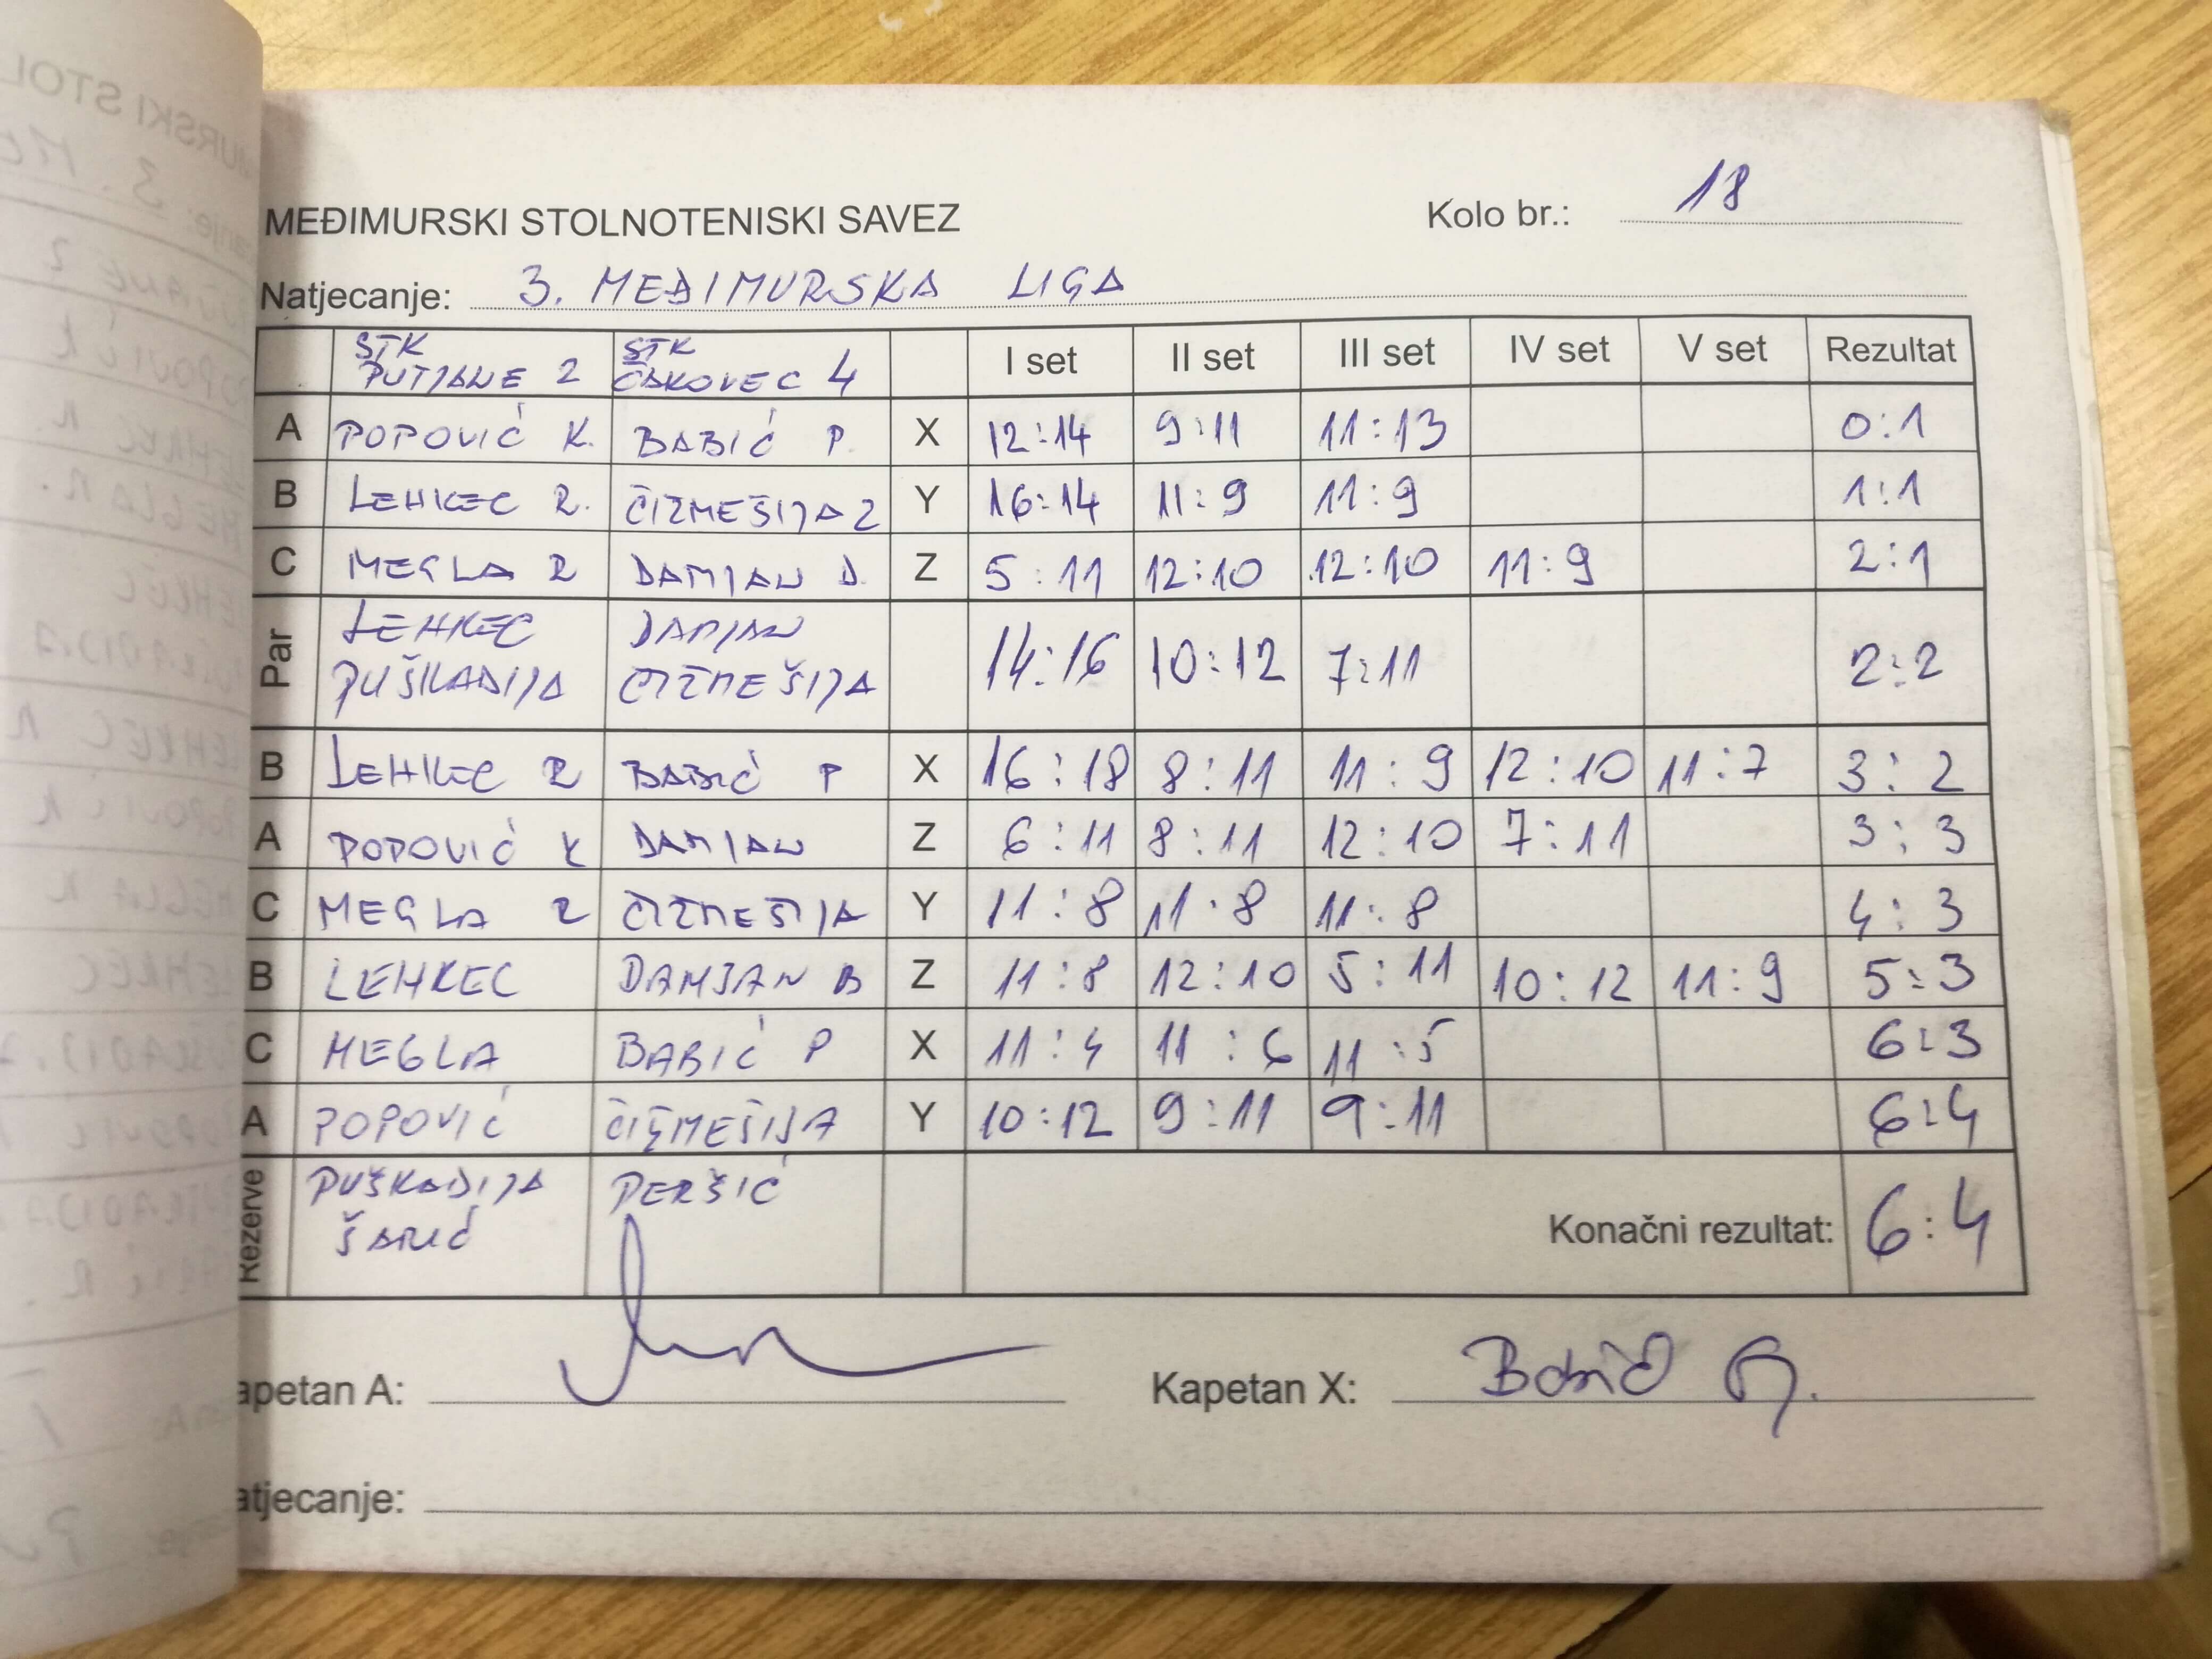 MEĐIMURSKI STOLNOTENISKI SAVEZ Kolo br.: 18
Natjecanje: 3. MEĐIMURSKA LIGA
STK PUTJANE 2 STK ČAKOVEC 4 I set II set III set IV set V set Rezultat
A POPOVIĆ K. BABIĆ P. X 12:14 9:11 11:13 0:1
B LEHKEC R. ČIZMEŠIJA Z Y 16:14 11:9 11:9 1:1
C MEGLA R DAMJAN D. Z 5:11 12:10 12:10 11:9 2:1
Par LEHKEC DAMJAN 14:16 10:12 7:11 2:2
PUŠKADIJA ČIZMEŠIJA
B LEHKEC R BABIĆ P X 16:18 8:11 11:9 12:10 11:7 3:2
A POPOVIĆ K DAMJAN Z 6:11 8:11 12:10 7:11 3:3
C MEGLA R ČIZMEŠIJA Y 11:8 11:8 11:8 4:3
B LEHKEC DAMJAN Z 11:8 12:10 5:11 10:12 11:9 5:3
C MEGLA BABIĆ P X 11:4 11:6 11:5 6:3
A POPOVIĆ ČIZMEŠIJA Y 10:12 9:11 9:11 6:4
Rezerve PUŠKADIJA PERŠIĆ
ŠARIĆ Konačni rezultat: 6:4
apetan A: Kapetan X:
atjecanje: